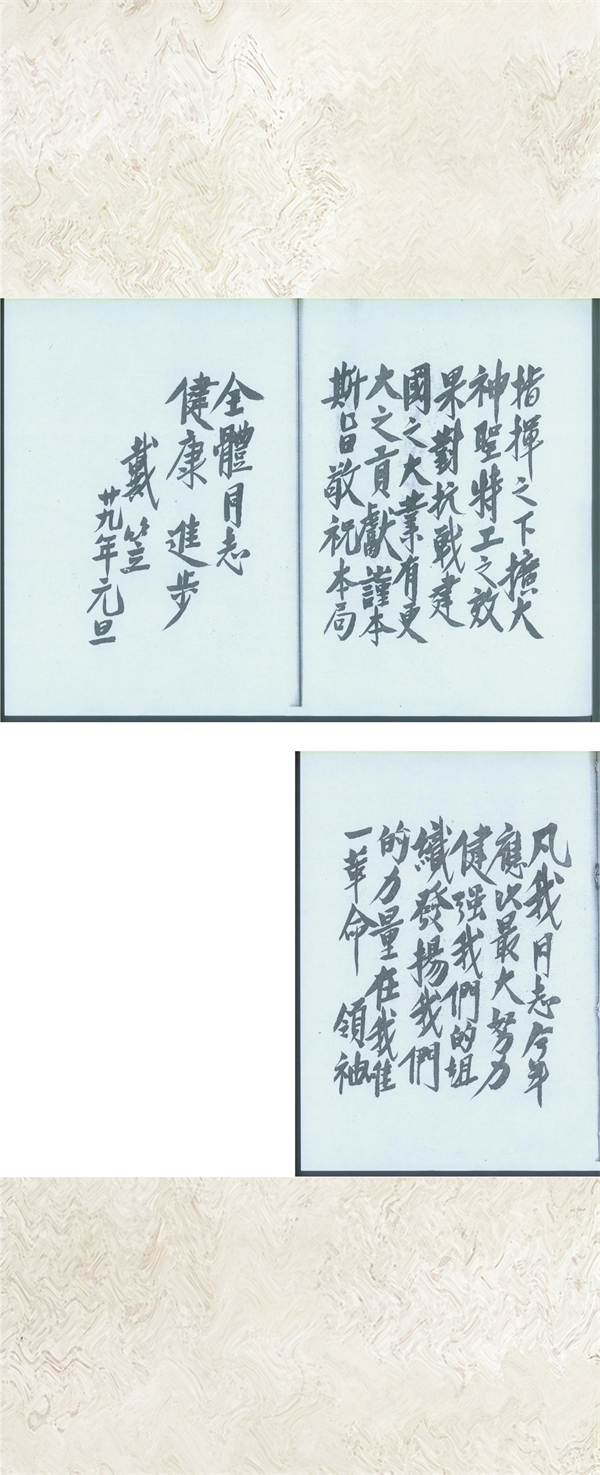 指揮之下擴大
神聖特工之效
果對抗戰建
國之大業有更
大之貢獻謹本
斯旨敬祝本局
全體同志
健康 進步
戴笠
廿九年元旦
凡我同志今年
應以最大努力
健强我們的組
織發揚我們
的力量在我唯
一革命 領袖